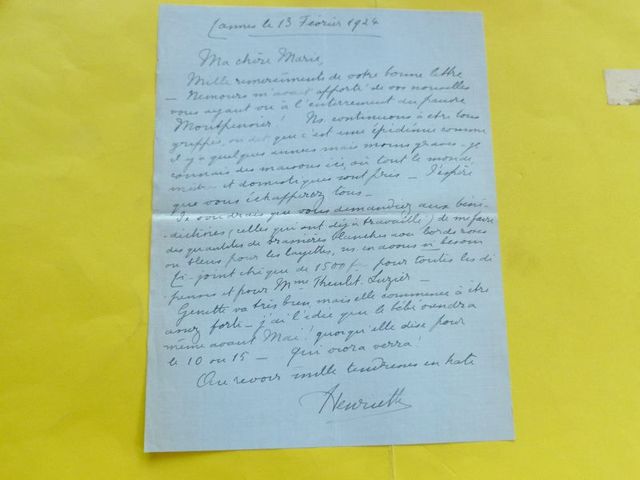 Cannes le 13 Février 1924
Ma chère Marie,
Mille remerciements de votre bonne lettre
— Nemours m'avait apporté de vos nouvelles
vous ayant vu à l'enterrement du pauvre
Montpensier! Ns. continuons à être tous
grippés, on dit que c'est une épidémie comme
il y a quelques années mais moins grave - je
connais des maisons ici, où tout le monde,
et domestiques sont pris — J'espère
que vous échapperez tous —
Je voudrais que vous demandiez aux béné-
-dictines (celles qui ont déjà travaillé) de me faire
des quantités de brassières blanches avec bords roses
ou bleus pour les layettes, ns. en avons si besoin
Ci-joint chèque de 1500 f. pour toutes les dé
penses et pour Mme Theulet-Luzier —
Genette va très bien, mais elle commence à être
assez forte — j'ai l'idée que le bébé viendra
même avant Mai! quoiqu'elle dise pour
le 10 ou 15 — Qui vivra verra!
Au revoir mille tendresses en hâte
Henriette